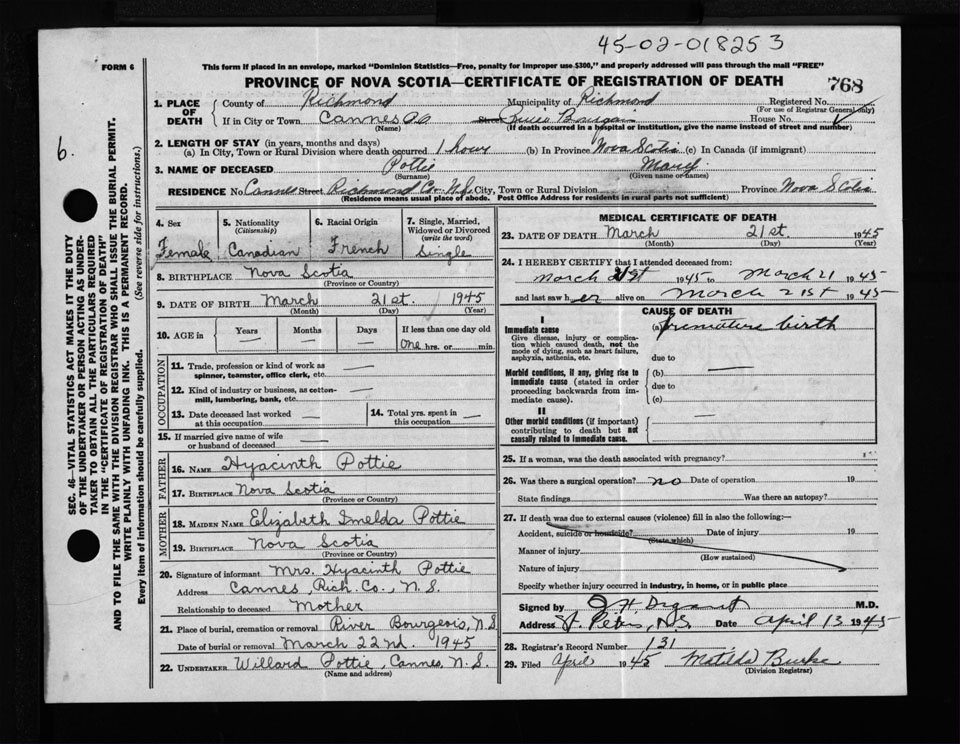 45-02-018253
FORM 6
This form if placed in an envelope, marked "Dominion Statistics—Free, penalty for improper use $300," and properly addressed will pass through the mail "FREE"
PROVINCE OF NOVA SCOTIA—CERTIFICATE OF REGISTRATION OF DEATH
768
6.
SEC. 46—VITAL STATISTICS ACT MAKES IT THE DUTY
OF THE UNDERTAKER OR PERSON ACTING AS UNDER-
TAKER TO OBTAIN ALL THE PARTICULARS REQUIRED
IN THE "CERTIFICATE OF REGISTRATION OF DEATH"
AND TO FILE THE SAME WITH THE DIVISION REGISTRAR WHO SHALL ISSUE THE BURIAL PERMIT.
WRITE PLAINLY WITH UNFADING INK. THIS IS A PERMANENT RECORD.
Every item of information should be carefully supplied. (See reverse side for instructions.)
1. PLACE OF DEATH
County of Richmond Municipality of Richmond Registered No.
(For use of Registrar General only)
If in City or Town Cannes Street House No.
(Name) (If death occurred in a hospital or institution, give the name instead of street and number)
2. LENGTH OF STAY (in years, months and days)
(a) In City, Town or Rural Division where death occurred 1 hour (b) In Province Nova Scotia (c) In Canada (if immigrant)
3. NAME OF DECEASED Pottie Mary
(Surname) (Given name or names)
RESIDENCE No. Cannes Street Richmond Co. N.S. City, Town or Rural Division Province Nova Scotia
(Residence means usual place of abode. Post Office Address for residents in rural parts not sufficient)
4. Sex
Female
5. Nationality
(Citizenship)
Canadian
6. Racial Origin
French
7. Single, Married,
Widowed or Divorced
(write the word)
Single
8. BIRTHPLACE Nova Scotia
(Province or Country)
9. DATE OF BIRTH March 21st. 1945
(Month) (Day) (Year)
10. AGE in Years Months Days If less than one day old
— — — One hrs. or min.
OCCUPATION
11. Trade, profession or kind of work as —
spinner, teamster, office clerk, etc.
12. Kind of industry or business, as cotton-
mill, lumbering, bank, etc. —
13. Date deceased last worked
at this occupation —
14. Total yrs. spent in
this occupation —
15. If married give name of wife
or husband of deceased —
FATHER
16. NAME Hyacinth Pottie
17. BIRTHPLACE Nova Scotia
(Province or Country)
MOTHER
18. MAIDEN NAME Elizabeth Imelda Pottie
19. BIRTHPLACE Nova Scotia
(Province or Country)
20. Signature of informant Mrs. Hyacinth Pottie
Address Cannes, Rich. Co., N.S.
Relationship to deceased Mother
21. Place of burial, cremation or removal River Bourgeois, N.S.
Date of burial or removal March 22nd. 1945
22. UNDERTAKER Willard Pottie, Cannes, N.S.
(Name and address)
MEDICAL CERTIFICATE OF DEATH
23. DATE OF DEATH March 21st. 1945
(Month) (Day) (Year)
24. I HEREBY CERTIFY that I attended deceased from:
March 21st 1945 to March 21 1945
and last saw her alive on March 21st 1945
CAUSE OF DEATH
I
Immediate cause
Give disease, injury or complica-
tion which caused death, not the
mode of dying, such as heart failure,
asphyxia, asthenia, etc.
(a) premature birth
due to
Morbid conditions, if any, giving rise to
immediate cause (stated in order
proceeding backwards from im-
mediate cause).
(b) —
due to
(c)
II
Other morbid conditions (if important)
contributing to death but not
causally related to immediate cause. —
25. If a woman, was the death associated with pregnancy?
26. Was there a surgical operation? no Date of operation 19
State findings Was there an autopsy?
27. If death was due to external causes (violence) fill in also the following:—
Accident, suicide or homicide? Date of injury 19
(State which)
Manner of injury
(How sustained)
Nature of injury
Specify whether injury occurred in industry, in home, or in public place
Signed by M.D.
Address St. Peters, N.S. Date April 13 1945
28. Registrar's Record Number 131
29. Filed April 1945 Matilda Burke
(Division Registrar)